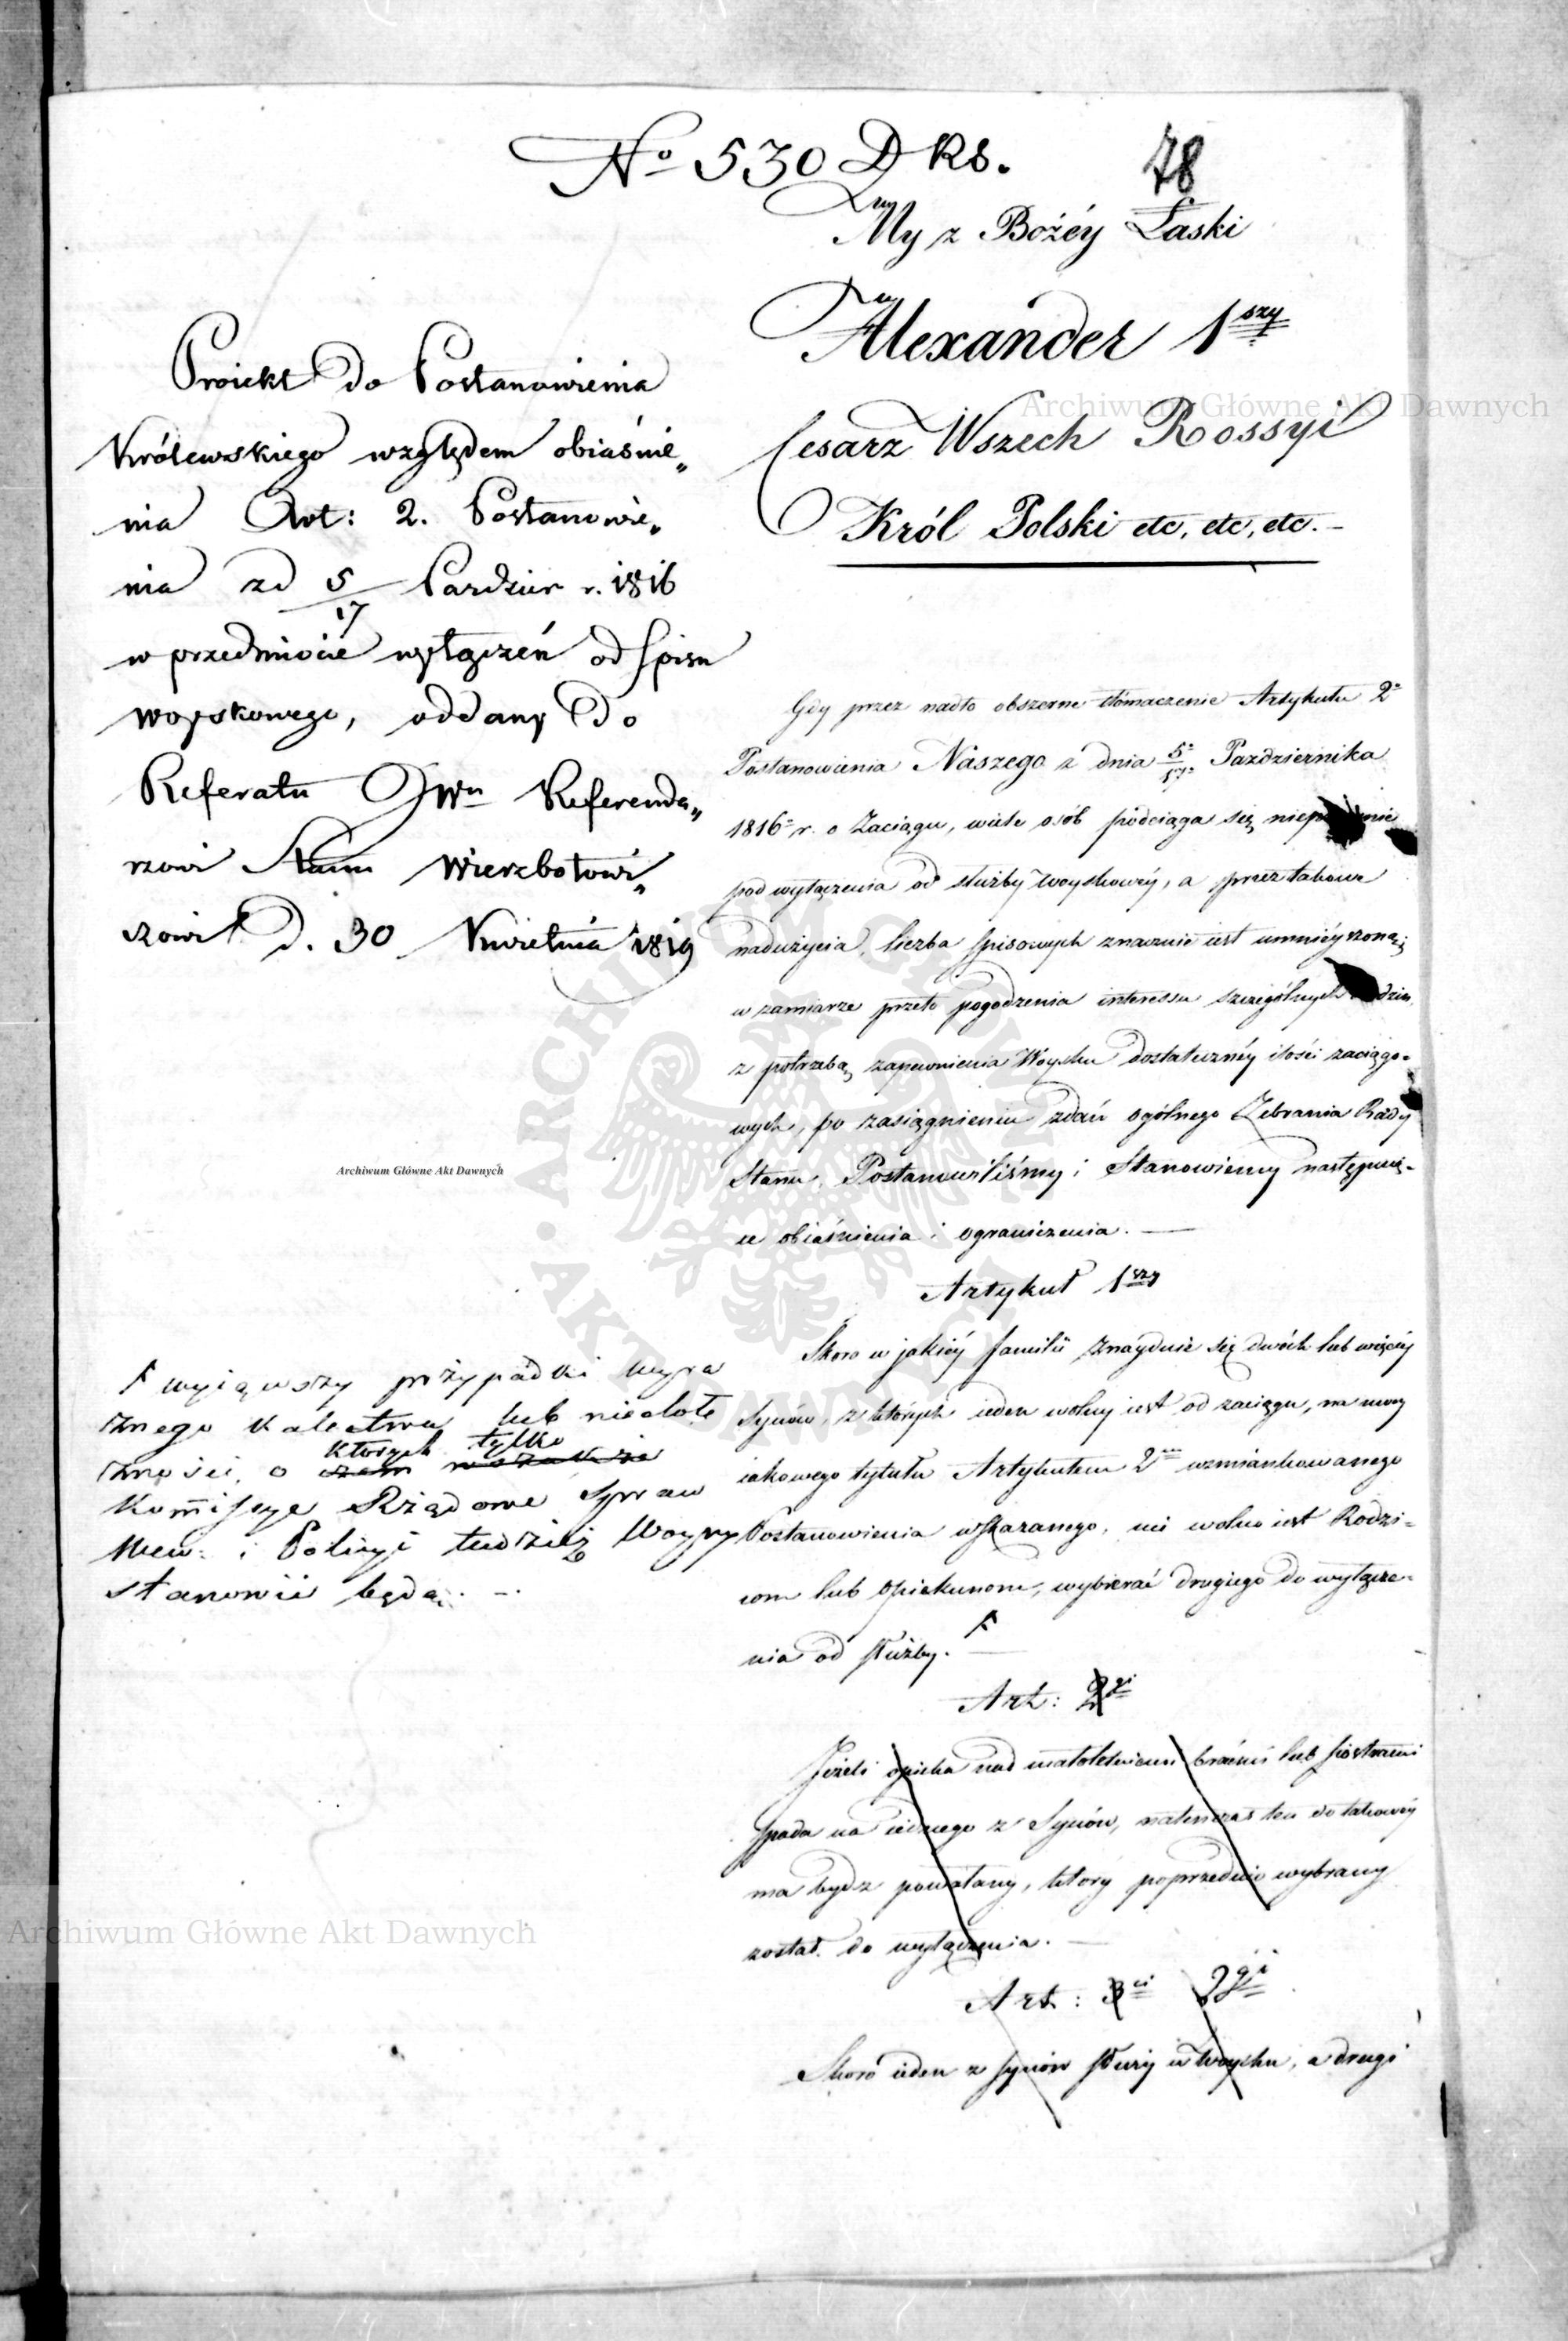 No 530 D Rs.
78
Proiekt do Postanowienia
Królewskiego względem obiaśnie„
nia Art: 2. Postanowie„
nia zd 5/17 Pazdzier r. 1816
w przedmiocie wyłączeń od spisu
woyskowego, oddany do
Referatu JWu Referenda„
rzowi Stanu Wierzbołowi„
czowi d. 30 Kwietnia 1819
My z Bożéy Łaski
Alexander 1szy
Cesarz Wszech Rossyi
Król Polski etc, etc, etc.
Gdy przez nadto obszerne tłómaczenie Artykułu 2o
Postanowienia Naszego z dnia 5o/17o Pazdziernika
1816o r. o Zaciągu, wiele osób podciąga się
pod wyłączenia od służby woyskowéy, a przez takowe
nadużycia, liczba spisowych znacznie iest umnieyszoną;
w zamiarze przeto pogodzenia interessu szczególnych
z potrzebą zapewnienia Woysku dostatecznéy ilości zaciągo-
wych, po zasiągnieniu zdań ogólnego Zebrania Rady
Stanu, Postanowiliśmy i Stanowiemy następuią-
ce obiaśnienia i ograniczenia. —
Artykuł 1szy
Skoro w jakiéy familii znaydzie się dwóch lub więcéy
Synów, z których ieden wolny iest od zaciągu, na mocy
iakowego tytułu Artykułem 2m wzmiankowanego
Postanowienia wskazanego, nie wolno iest Rodzi-
com lub opiekunom, wybierać drugiego do wyłącze-
nia od służby. F
F wyiąwszy przypadki wyra
znego kalectwa lub niedołę
których tylko
żności, o czem wszakże
Kommissye Rządowe Spraw
Wew: i Policyi tudzież Woyny
stanowić będą. —
Art: 2gi
Jeżeli opieka nad małoletniemi braćmi lub siostrami
spada na iednego z Synów, natenczas ten do takowéy
ma bydz powołany, który poprzednio wybrany
został do wyłączenia. —
Art: 3ci 2gi
Skoro ieden z synów służy w Woysku, a drugi
Archiwum Główne Akt Dawnych
Archiwum Główne Akt Dawnych
Archiwum Główne Akt Dawnych
ARCHIWUM GŁÓWNE AKT DAWNYCH